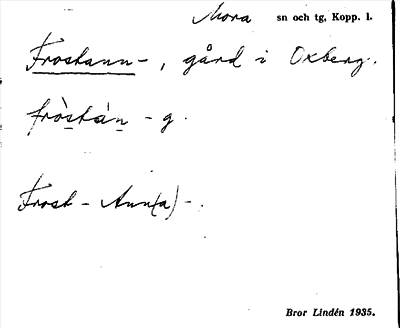 Mora sn och tg, Kopp. l.
Froskann-, gård i Oxberg.
fròskán - g.
Frosk - Ann(a) -.
Bror Lindén 1935.